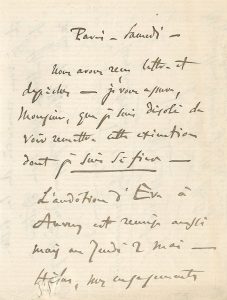 Paris – Samedi –
nous avons reçu lettre et
dépêches – je vous assure,
Monsieur, que je suis désolé de
voir remettre cette exécution
dont je suis si fier –
L'audition d'Eve à
Anvers est remise aussi
mais au Jeudi 2 mai –
Hélas, mes engagements